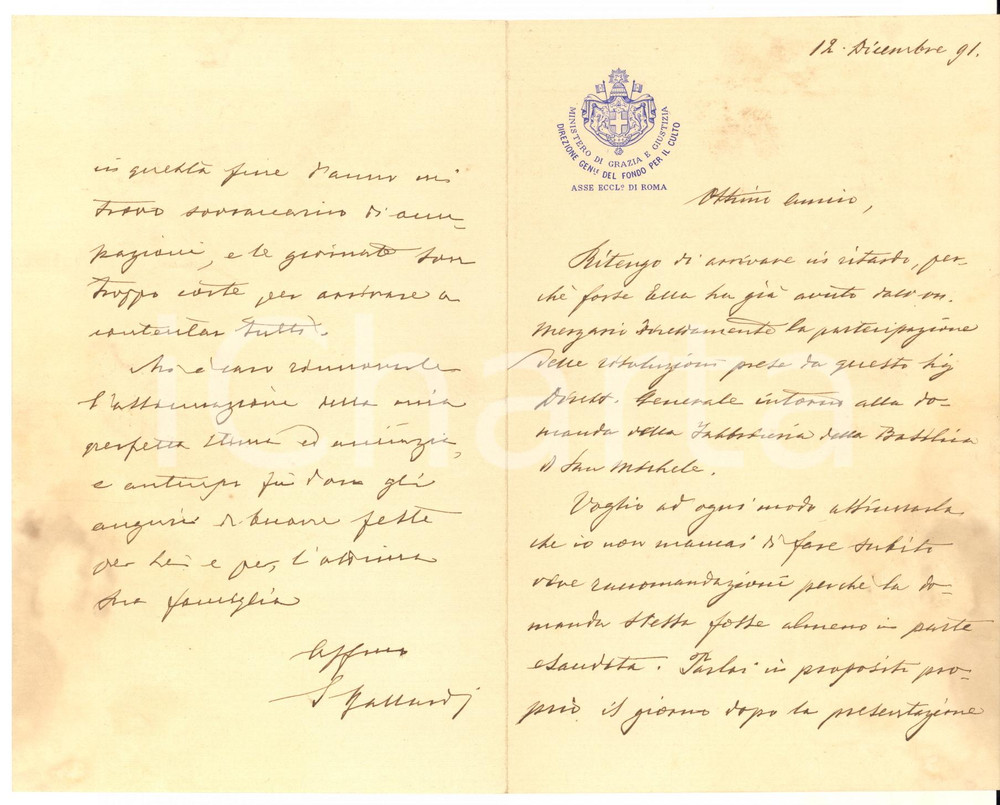 12. Dicembre 91.
MINISTERO DI GRAZIA E GIUSTIZIA
DIREZIONE GENLE DEL FONDO PER IL CULTO
ASSE ECCLO DI ROMA
Ottimo amico,
Ritengo di arrivare in ritardo, per-
chè forse Ella ha già avuto dall'on.
Merzario direttamente la partecipazione
delle risoluzioni prese da questa
Direz. Generale intorno alla do-
manda della Fabbriceria della Basilica
di San Michele.
Voglio ad ogni modo assicurarla
che io non mancai di fare subito
vive raccomandazioni perchè la do-
manda stessa fosse almeno in parte
esaudita. Parlai in proposito pro-
prio il giorno dopo la presentazione
in questa fine d'anno mi
trovo sovraccarico di occu-
pazioni, e le giornate son
troppo corte per arrivare a
contentar tutti.
Mi è caro rinnovarle
l'attestazione della mia
perfetta stima ed amicizia,
e anticipo fin d'ora gli
augurii di buone feste
per Lei e per l'ottima
sua famiglia
Affmo
iCharta